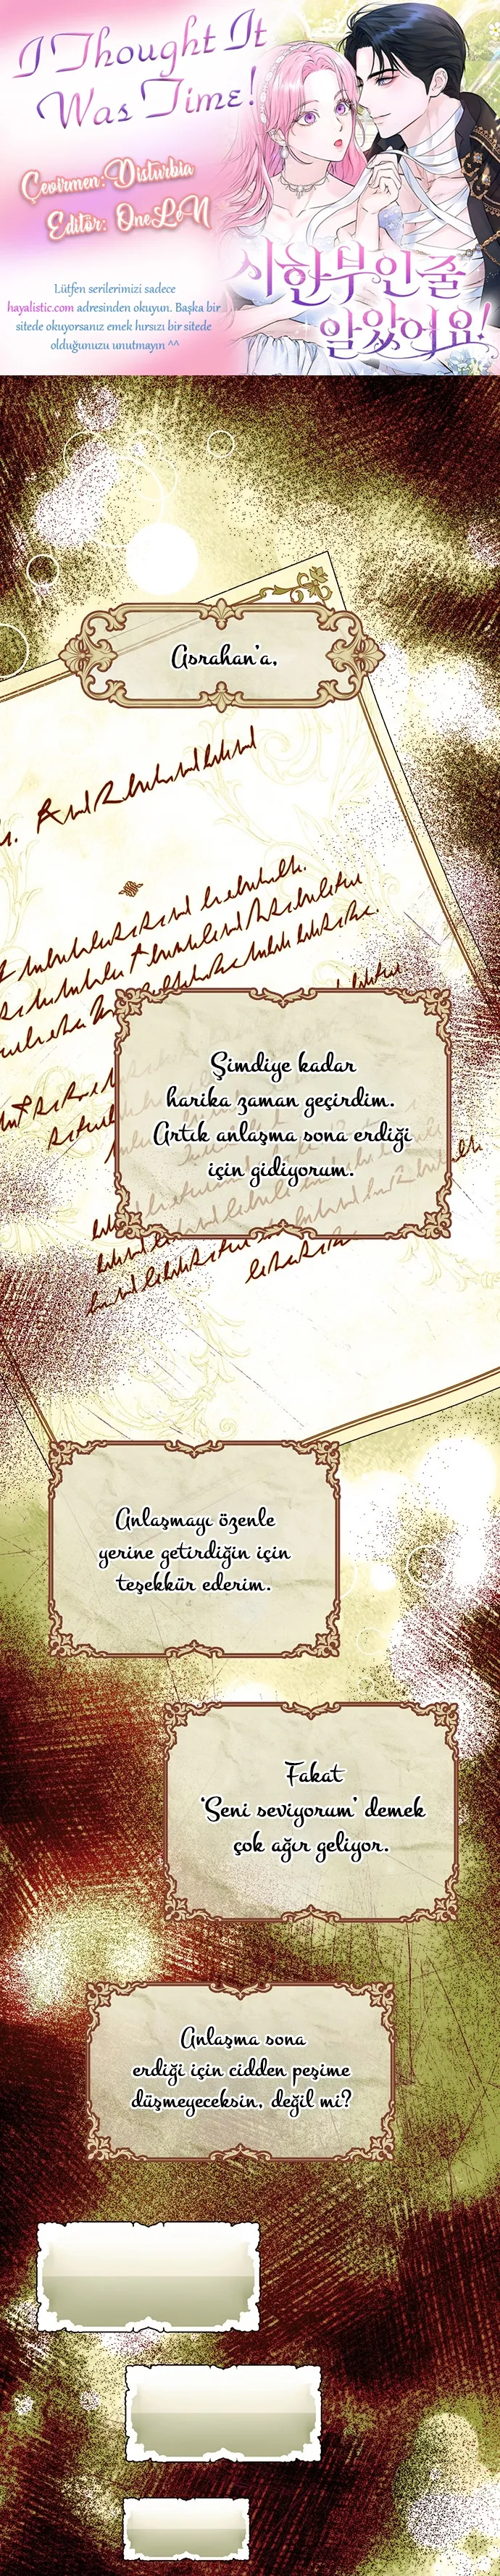 I Thought It
Was Time!
Çevirmen: Disturbia
Editör: OneLeN
Lütfen serilerimizi sadece
hayalistic.com adresinden okuyun. Başka bir
sitede okuyorsanız emek hırsızı bir sitede
olduğunuzu unutmayın ^^
시한부인 줄
알았어요!
Asrahan'a,
Şimdiye kadar
harika zaman geçirdim.
Artık anlaşma sona erdiği
için gidiyorum.
Anlaşmayı özenle
yerine getirdiğin için
teşekkür ederim.
Fakat
'Seni seviyorum' demek
çok ağır geliyor.
Anlaşma sona
erdiği için cidden peşime
düşmeyeceksin, değil mi?